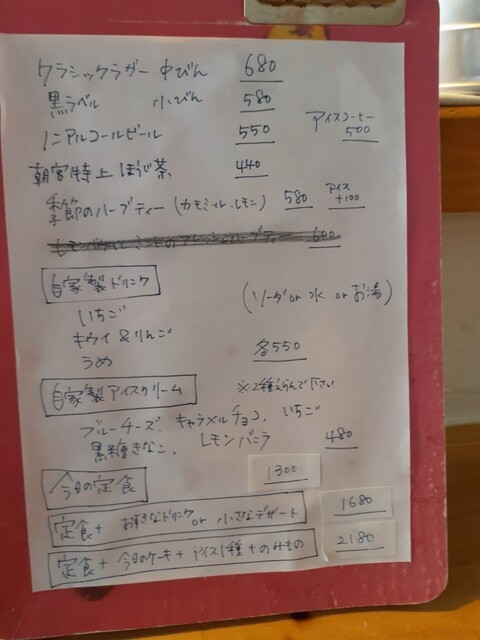 クラシックラガー 中びん 680
黒ラベル 小びん 580
ノンアルコールビール 550
アイスコーヒー 500
朝宮特上ほうじ茶 440
季節のハーブティー (カモミール・レモン) 580 アイス +100
ミントのフレッシュハーブティー 600
自家製ドリンク
(ソーダ or 水 or お湯)
いちご
キウイ&りんご
うめ 各550
自家製アイスクリーム ※2種えらんで下さい
ブルーチーズ、キャラメルチョコ、いちご
黒糖きなこ、レモンバニラ 480
今日の定食 1300
定食+お好きなドリンク or 小さなデザート 1680
定食+今日のケーキ+アイス1種+のみもの 2180